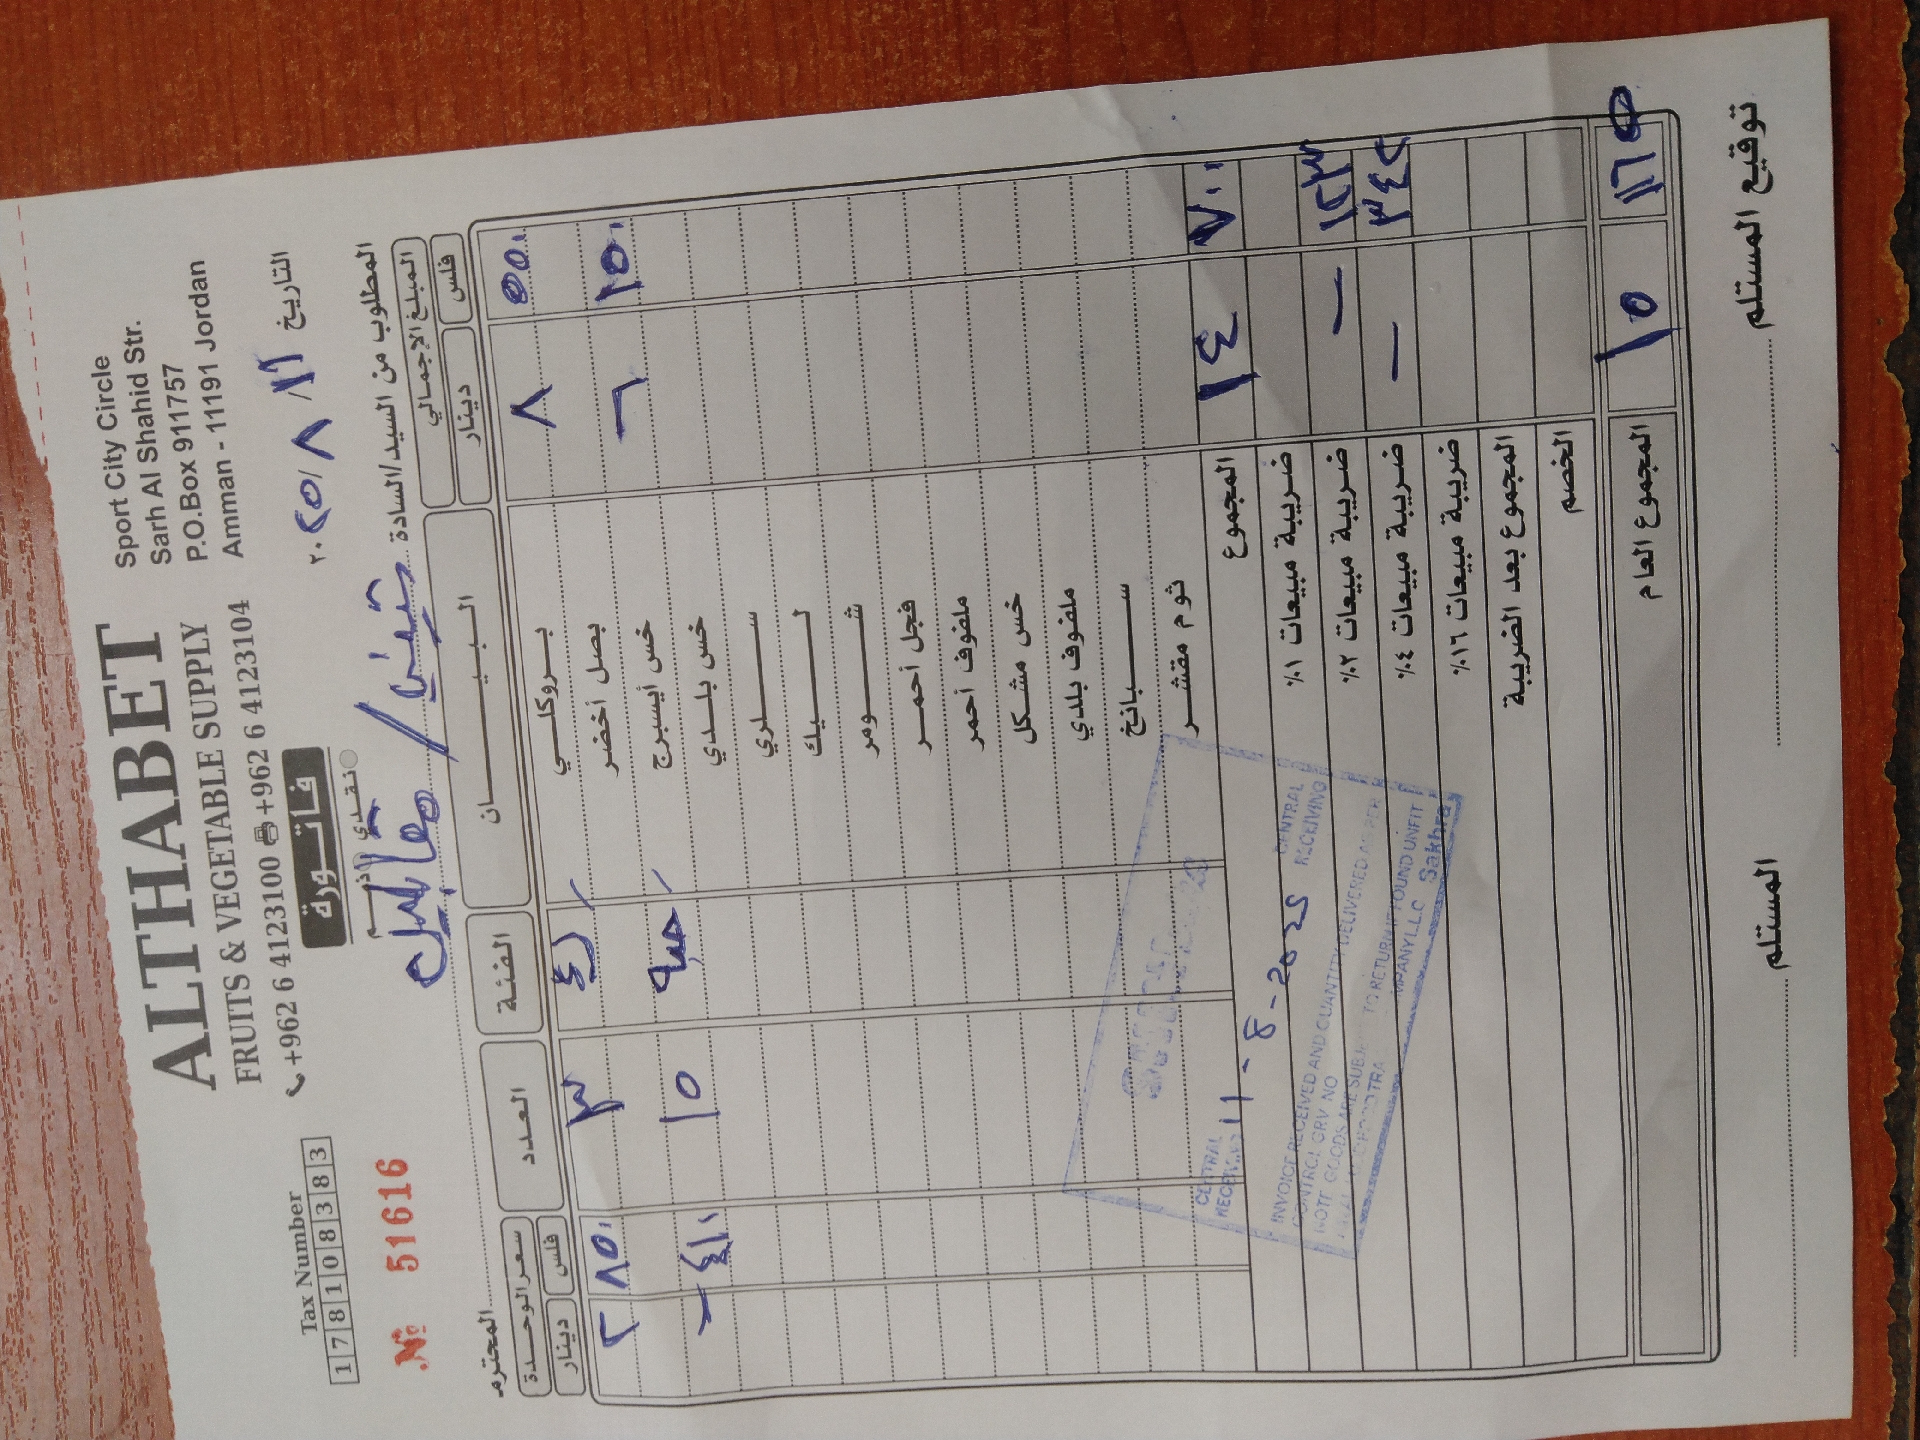 ALTHABET
FRUITS & VEGETABLE SUPPLY
+962 6 4123100 +962 6 4123104
Sport City Circle
Sarh Al Shahid Str.
P.O.Box 911757
Amman - 11191 Jordan
Tax Number
1 7 8 1 0 8 3 8 3
فاتورة
نقدي
ذمم
№ 51616
التاريخ ١٦/ ٨ /٢٠٢٥
المطلوب من السيد/السادة
المحترم
المبلغ الإجمالي البيان الفئة العدد سعر الوحدة
فلس دينار فلس دينار
٥٥٠ ٨ بروكلي ٣ ٨٥٠ ٢
١٥٠ ٦ بصل أخضر ١٥ ٤١٠ -
خس أيسبرج
خس بلدي
سلري
ليك
شومر
فجل أحمر
ملفوف أحمر
خس مشكل
ملفوف بلدي
سبانخ
ثوم مقشر
٧٠٠ ١٤ المجموع
ضريبة مبيعات ١٪
١٢٣ - ضريبة مبيعات ٢٪
٣٤٢ - ضريبة مبيعات ٤٪
ضريبة مبيعات ١٦٪
المجموع بعد الضريبة
الخصم
١٦٥ ١٥ المجموع العام
CENTRAL
RECEIVING
11 - 8 - 2025
CENTRAL
RECEIVING
INVOICE RECEIVED AND QUANTITY DELIVERED AS PER
CONTROL GRV NO
NOTE GOODS ARE SUBJECT TO RETURN IF FOUND UNFIT
Sakhra
توقيع المستلم
المستلم